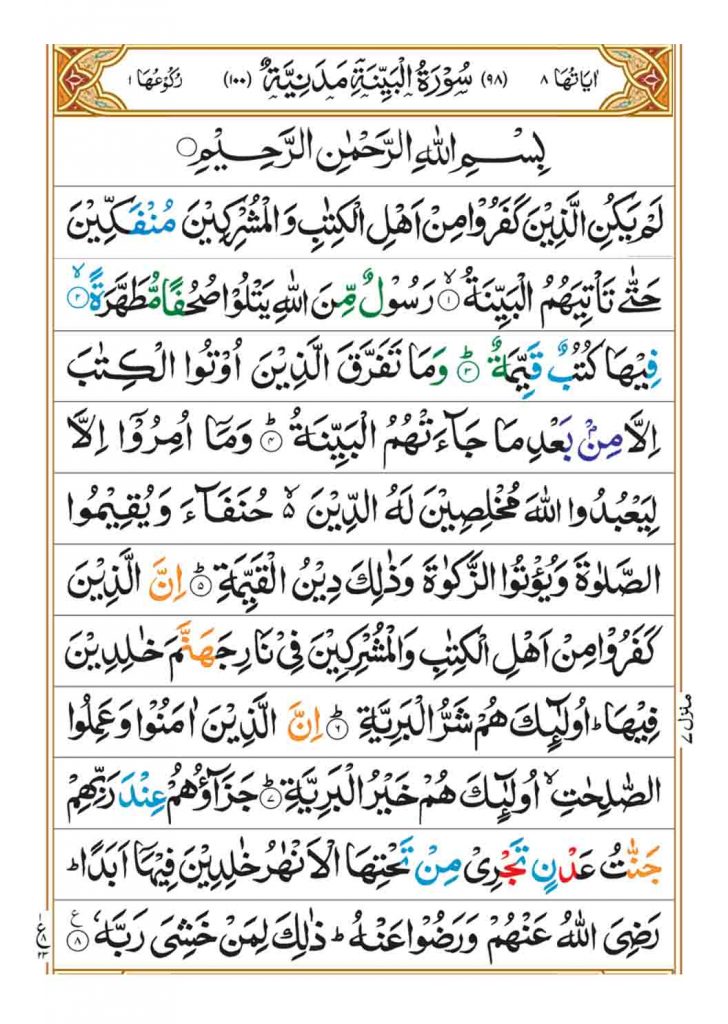 اٰيَاتُهَا ٨ (٩٨) سُوْرَةُ الْبَيِّنَةِ مَدَنِيَّةٌ (١٠٠) رُكُوْعُهَا ١
بِسْمِ اللّٰهِ الرَّحْمٰنِ الرَّحِيْمِ ○
لَمْ يَكُنِ الَّذِيْنَ كَفَرُوْا مِنْ اَهْلِ الْكِتٰبِ وَالْمُشْرِكِيْنَ مُنْفَكِّيْنَ
حَتّٰى تَاْتِيَهُمُ الْبَيِّنَةُ ۙ‏﴿١﴾ رَسُوْلٌ مِّنَ اللّٰهِ يَتْلُوْا صُحُفًا مُّطَهَّرَةً ۙ‏﴿٢﴾
فِيْهَا كُتُبٌ قَيِّمَةٌ ؕ‏﴿٣﴾ وَمَا تَفَرَّقَ الَّذِيْنَ اُوْتُوا الْكِتٰبَ
اِلَّا مِنْۢ بَعْدِ مَا جَآءَتْهُمُ الْبَيِّنَةُ ؕ‏﴿٤﴾ وَمَاۤ اُمِرُوْۤا اِلَّا
لِيَعْبُدُوا اللّٰهَ مُخْلِصِيْنَ لَهُ الدِّيْنَ ۙ۬ حُنَفَآءَ وَيُقِيْمُوا
الصَّلٰوةَ وَيُؤْتُوا الزَّكٰوةَ وَذٰلِكَ دِيْنُ الْقَيِّمَةِ ؕ‏﴿٥﴾ اِنَّ الَّذِيْنَ
كَفَرُوْا مِنْ اَهْلِ الْكِتٰبِ وَالْمُشْرِكِيْنَ فِيْ نَارِ جَهَنَّمَ خٰلِدِيْنَ
فِيْهَا ؕ اُولٰٓئِكَ هُمْ شَرُّ الْبَرِيَّةِ ؕ‏﴿٦﴾ اِنَّ الَّذِيْنَ اٰمَنُوْا وَعَمِلُوا
الصّٰلِحٰتِ ۙ اُولٰٓئِكَ هُمْ خَيْرُ الْبَرِيَّةِ ؕ‏﴿٧﴾ جَزَآؤُهُمْ عِنْدَ رَبِّهِمْ
جَنّٰتُ عَدْنٍ تَجْرِيْ مِنْ تَحْتِهَا الْاَنْهٰرُ خٰلِدِيْنَ فِيْهَاۤ اَبَدًا ؕ
رَضِيَ اللّٰهُ عَنْهُمْ وَرَضُوْا عَنْهُ ؕ ذٰلِكَ لِمَنْ خَشِيَ رَبَّهٗ ‏﴿٨﴾ ع
منزل ٧
ع ٨ ٢٣